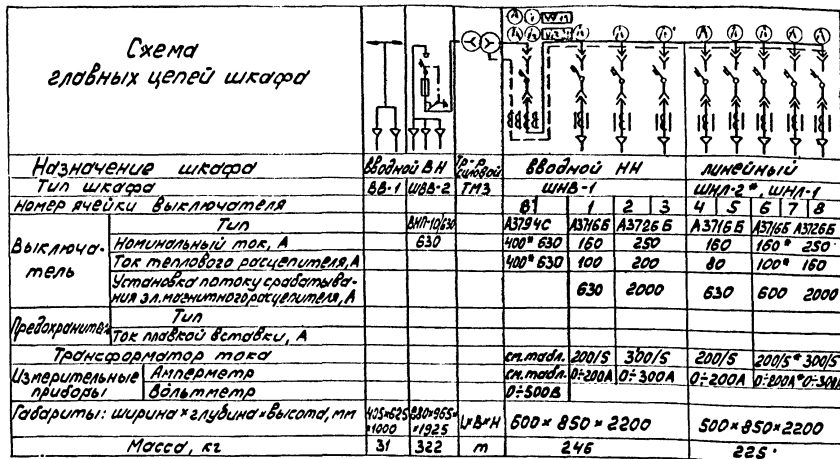 Схема
главных цепей шкафа
Назначение шкафа вводной ВН Тр-р силовой вводной НН линейный
Тип шкафа ВВ-1 ШВВ-2 ТМЗ ШНВ-1 ШНЛ-2*, ШНЛ-1
Номер ячейки выключателя В1 1 2 3 4 5 6 7 8
Выключатель Тип ВНП-10/630 А3794С А3716Б А3726Б А3716Б А3716Б А3726Б
Номинальный ток, А 630 400* 630 160 250 160 160* 250
Ток теплового расцепителя, А 400* 630 100 200 80 100* 160
Установка по току срабатывания эл. магнитного расцепителя, А 630 2000 630 600 2000
Предохранитель Тип
Ток плавкой вставки, А
Трансформатор тока см. табл. 200/5 300/5 200/5 200/5* 300/5
Измерительные приборы Амперметр см. табл. 0÷200А 0÷300А 0÷200А 0÷200А* 0÷300А
Вольтметр 0÷500В
Габариты: ширина × глубина × высота, мм 405×625×1000 880×965××1925 L×B×H 600 × 850 × 2200 500 × 850 × 2200
Масса, кг 31 322 m 246 225